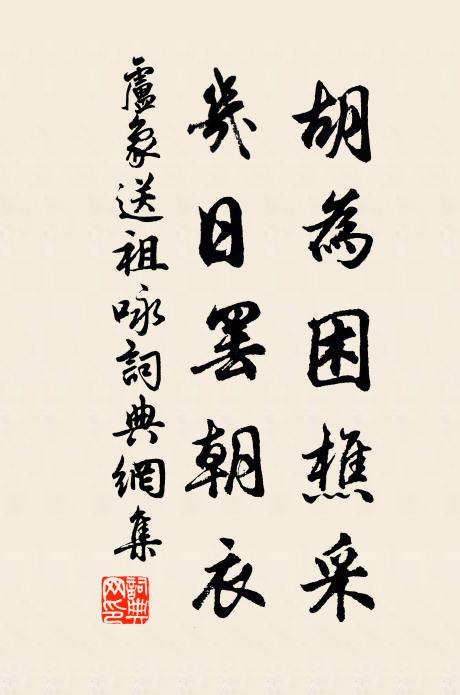 胡為困樵采
幾日罢朝衣
盧象送祖咏詞典網集
詞典網印